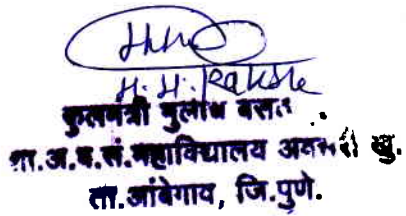 H. H. Rakshe
कुलमंत्री गुलाब वसं.
शा.अ.व.सं.महाविद्यालय अवसरी खु.
ता.आंबेगाव, जि.पुणे.